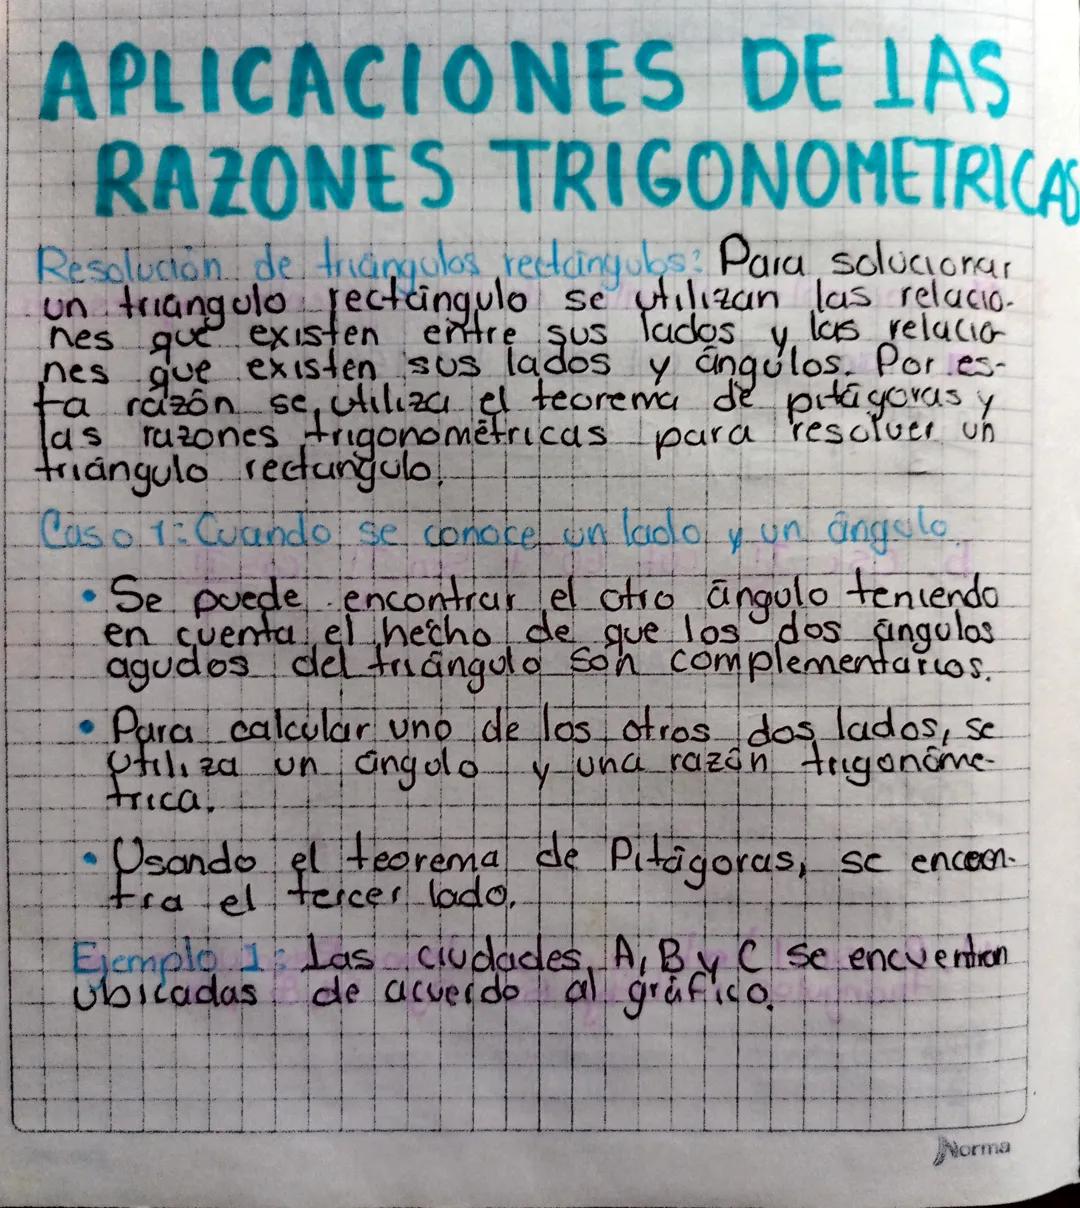 APLICACIONES DE LAS
RAZONES TRIGONOMETRICAS
Resolución de triángulos rectángulos: Para solucionar
un triangulo rectángulo se utilizan las relacio-
nes que existen entre sus lados y las relacio
nes que existen sus lados y ángulos. Por es-
ta razón se utiliza el teorema de pitágoras y
las razones trigonométricas para resolver un
triángulo rectangulo.
Caso 1: Cuando se conoce un lado y un ángulo.
• Se puede encontrar el otro ángulo teniendo
en cuenta el hecho de que los dos ángulos
agudos del triángulo son complementarios.
• Para calcular uno de los otros dos lados, se
utiliza un ángulo y una razón trigonóme-
trica.
• Usando el teorema de Pitágoras, se encon-
tra el tercer lado.
Ejemplo 1: Las ciudades A, B y C se encuentran
ubicadas de acuerdo al gráfico.
Norma